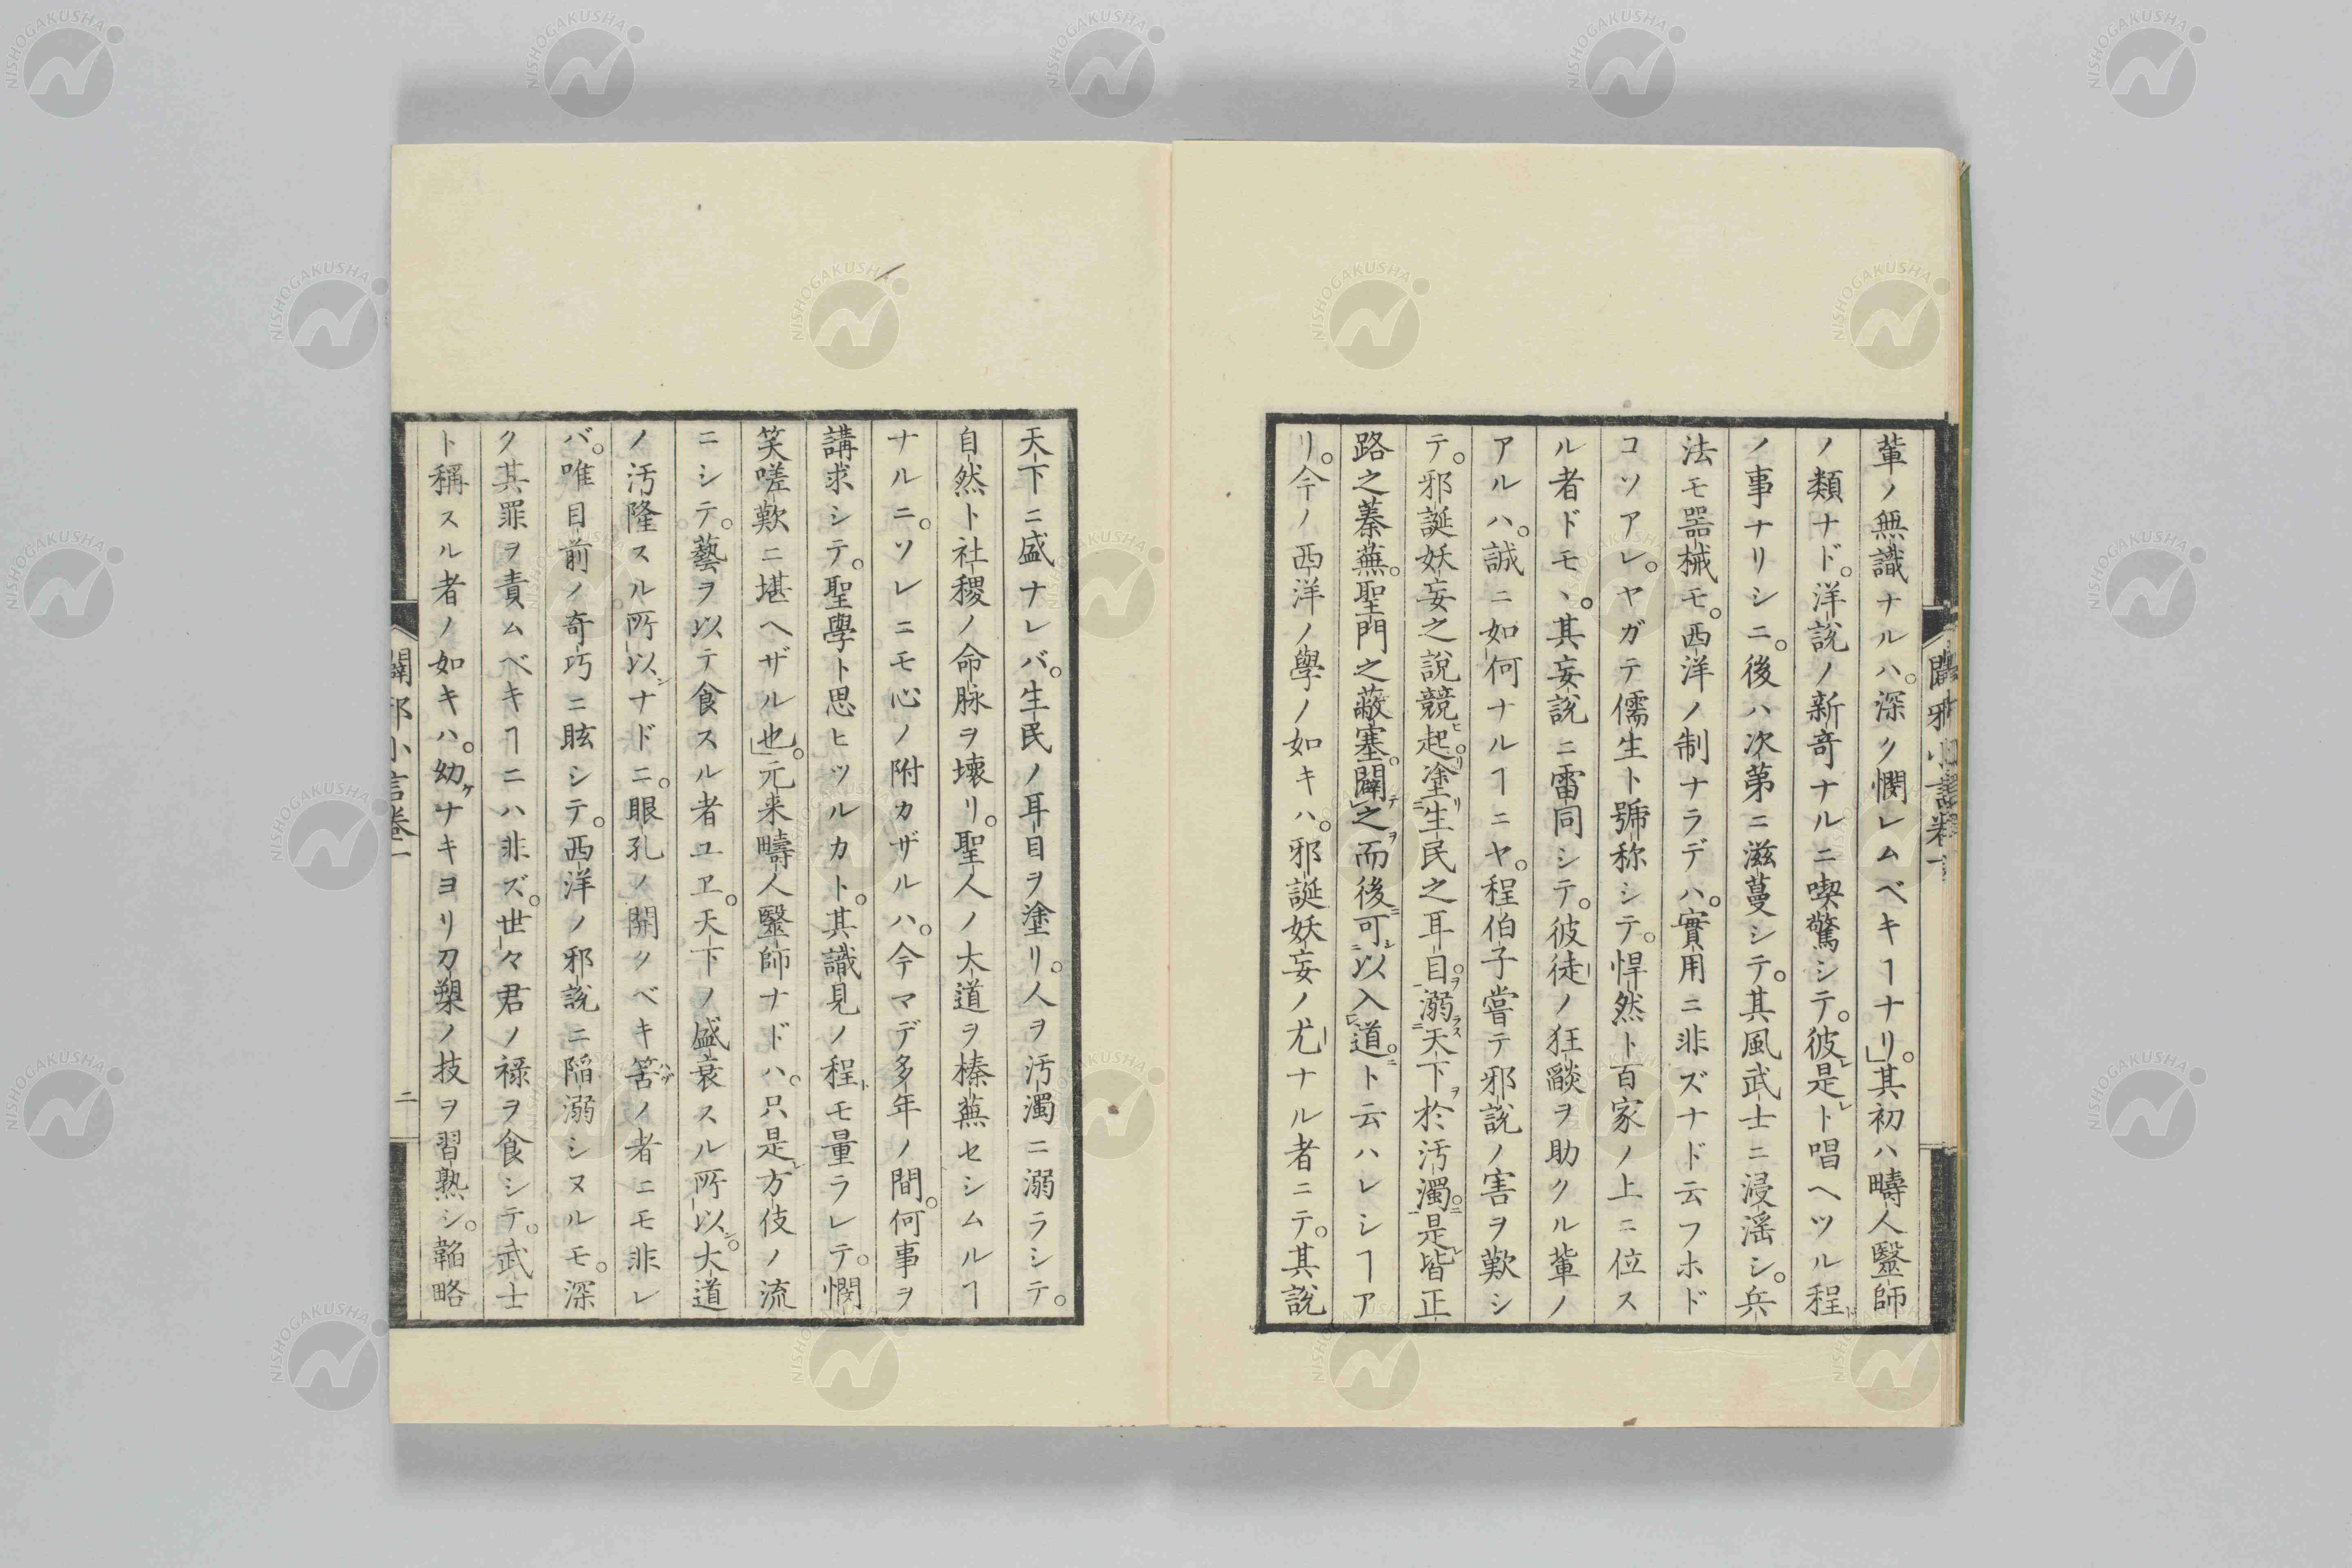 輩ノ無識ナルハ。深ク憫レムベキヿナリ」。其初ハ疇人醫師
ノ類ナド。洋説ノ新奇ナルニ喫驚シテ。彼レ是レト唱ヘツル程ド
ノ事ナリシニ。後ハ次第ニ滋蔓シテ。其風武士ニ浸淫シ。兵
法モ器械モ。西洋ノ制ナラデハ。實用ニ非ズナド云フホド
コソアレ。ヤガテ儒生ト號称シテ。悍然ト百家ノ上ニ位ス
ル者ドモヽ。其妄説ニ雷同シテ。彼徒ノ狂談ヲ助クル輩ノ
アルハ。誠ニ如何ナルヿニヤ。程伯子嘗テ邪説ノ害ヲ歎シ
テ。邪誕妖妄之説競起。塗生民之耳目。溺天下於汚濁。是皆正
路之蓁蕪。聖門之蔽塞。闢之而後可以入道。ト云ハレシヿア
リ。今ノ西洋ノ學ノ如キハ。邪誕妖妄ノ尤ナル者ニテ。其説
天下ニ盛ナレバ。生民ノ耳目ヲ塗リ。人ヲ汚濁ニ溺ラシテ。
自然ト社稷ノ命脉ヲ壊リ。聖人ノ大道ヲ榛蕪セシムルヿ
ナルニ。ソレニモ心ノ附カザルハ。今マデ多年ノ間。何事ヲ
講求シテ。聖學ト思ヒツルカト。其識見ノ程ドモ量ラレテ。憫
笑嗟歎ニ堪ヘザル也」。元来疇人醫師ナドハ。只是レ方伎ノ流
ニシテ。藝ヲ以テ食スル者ユヱ。天下ノ盛衰スル所以。大道
ノ汚隆スル所以ナドニ。眼孔ノ開クベキ筈ノ者ニモ非レ
バ。唯目前ノ奇巧ニ眩シテ。西洋ノ邪説ニ陥溺シヌルモ。深
ク其罪ヲ責ムベキヿニハ非ズ。世々君ノ禄ヲ食シテ。武士
ト稱スル者ノ如キハ。幼ケナキヨリ刀槊ノ技ヲ習熟シ。韜略
闢邪小言巻一
二